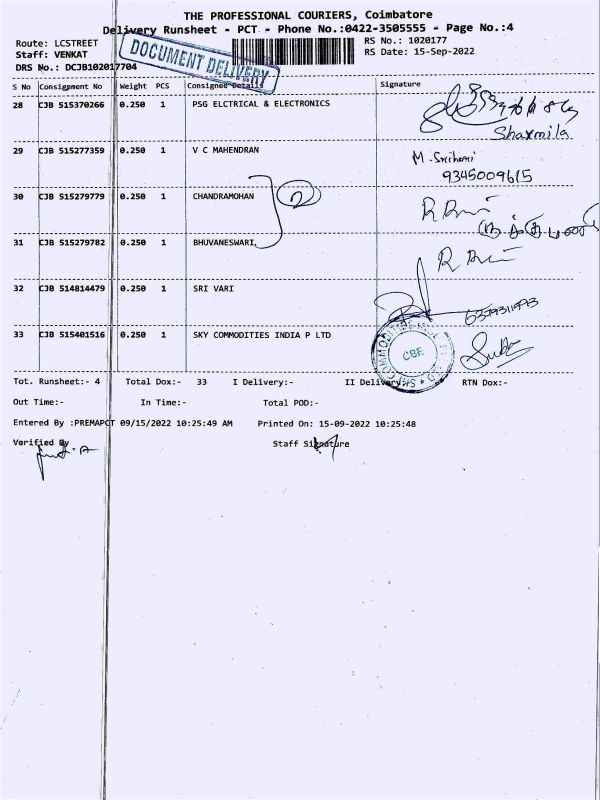 THE PROFESSIONAL COURIERS, Coimbatore
Delivery Runsheet - PCT - Phone No.:0422-3505555 - Page No.:4
Route: LCSTREET RS No.: 1020177
Staff: VENKAT RS Date: 15-Sep-2022
DRS No.: DCJB102017704
DOCUMENT DELIVERY
S No Consignment No Weight PCS Consignee Details Signature
28 CJB 515370266 0.250 1 PSG ELCTRICAL & ELECTRONICS
Sharmila
29 CJB 515277359 0.250 1 V C MAHENDRAN
9345009615
30 CJB 515279779 0.250 1 CHANDRAMOHAN 2
31 CJB 515279782 0.250 1 BHUVANESWARI,
32 CJB 514814479 0.250 1 SRI VARI
33 CJB 515401516 0.250 1 SKY COMMODITIES INDIA P LTD
CBE
Tot. Runsheet:- 4 Total Dox:- 33 I Delivery:- II Delivery:- RTN Dox:-
Out Time:- In Time:- Total POD:-
Entered By :PREMAPCT 09/15/2022 10:25:49 AM Printed On: 15-09-2022 10:25:48
Verified By Staff Signature